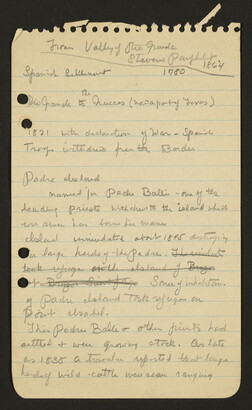 From Valley of Rio Grande
Stevens Pamphlet 1864
Spanish Settlement 1750
Rio Grande to the Nueces (map of Texas)
1821 with declaration of War - Spanish
Troops withdrew from the Border
Padre Island
named for Padre Balli - one of the
leading priests the island which
ever since has borne his name
Island inundated about 1845 destroying
a large herd of the Padre.
took refuge on the island of
of Some of inhabitants
of Padre Island took refuge on
Point Isabel.
This Padre Balli & other priests had
settled & were growing stock. As late
as 1835 a traveler reported that large
herds of wild cattle were seen ranging